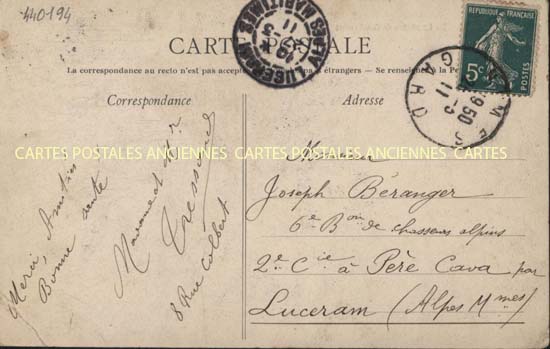 440194
CARTE POSTALE
La correspondance au recto n'est pas accep à étrangers — Se renseigner à la Po
RÉPUBLIQUE FRANÇAISE
5c
POSTES
LUCERAM
ALPES MARITIMES
NIMES
9 50
11
GARD
Correspondance
Adresse
CARTES POSTALES ANCIENNES CARTES POSTALES ANCIENNES CARTES
Merci, Amitiés
Bonne santé
8 Rue Colbert
Monsieur
Joseph Béranger
6e Bon de chasseurs alpins
2e Cie à Père Cava par
Luceram (Alpes Mmes)